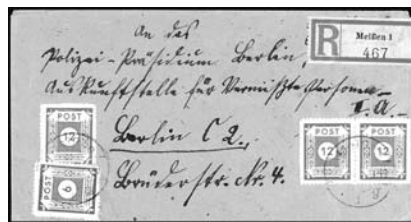 An das
Polizei-Präsidium Berlin,
Auskunftstelle für Vermißte Personen
I.A.
Berlin C 2.,
Brüderstr. Nr. 4.
R
Meißen 1
467
POST
12
POST
6
POST
12
POST
12